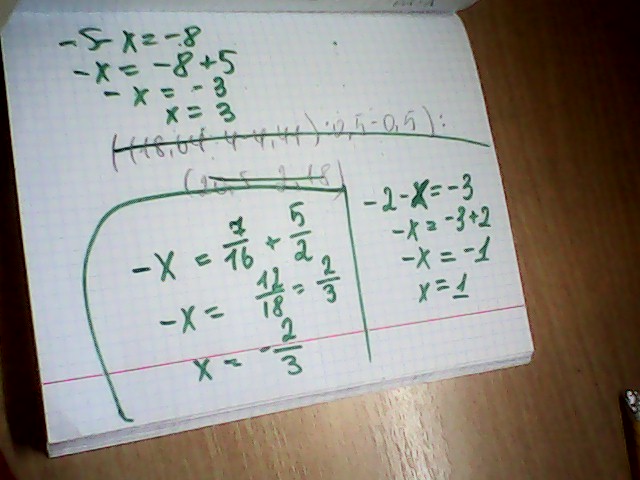 -5-x=-8
-x = -8+5
-x = -3
x = 3
-x = 7/16 + 5/2
-x = 12/18 = 2/3
x = -2/3
-2-x=-3
-x = -3+2
-x = -1
x = 1